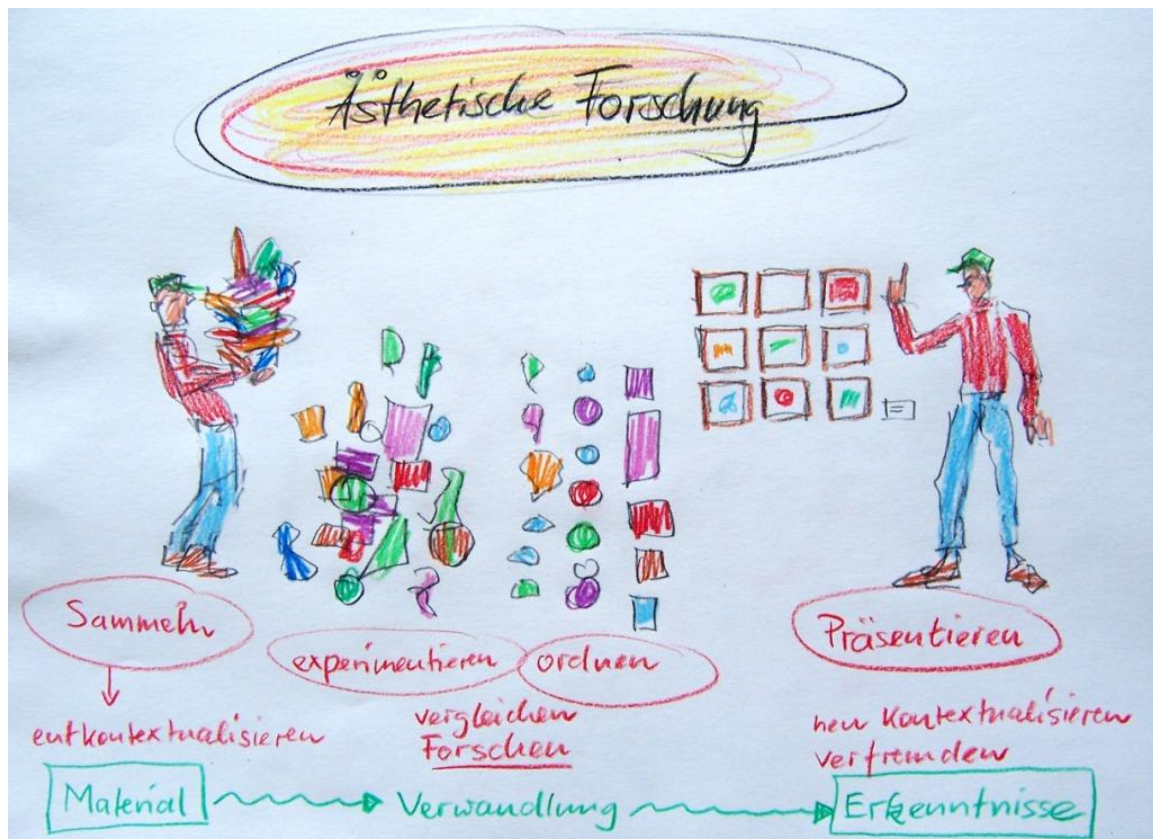 Ästhetische Forschung
Sammeln
experimentieren
ordnen
Präsentieren
entkontextualisieren
vergleichen
Forschen
neu Kontextualisieren
verfremden
Material
Verwandlung
Erkenntnisse